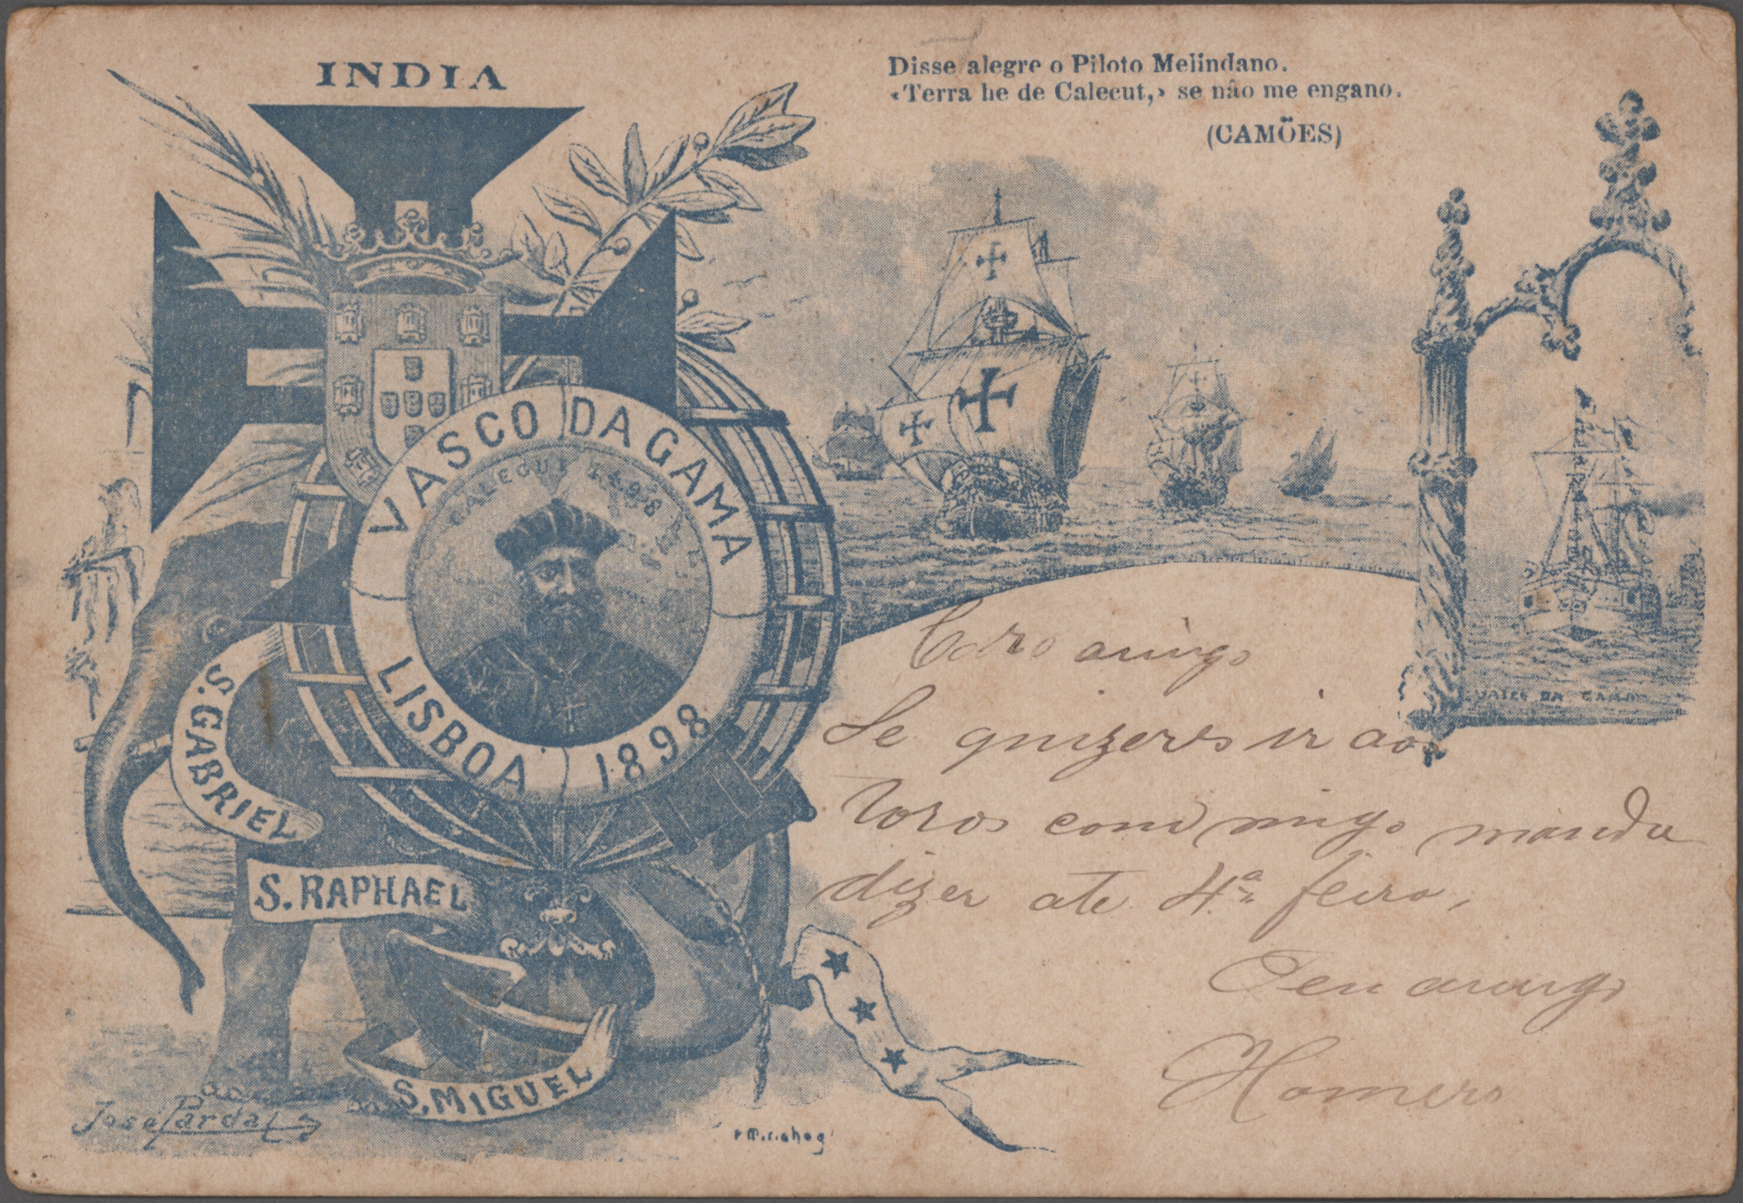 INDIA
Disse alegre o Piloto Melindano.
«Terra he de Calecut,» se não me engano.
(CAMÖES)
VASCO DA GAMA
CALECUT 1498
LISBOA 1898
S. GABRIEL
S. RAPHAEL
S. MIGUEL
VASCO DA GAMA
Jose Pardal
Caro amigo
Se quizeres ir aos
Toros comd migo manda
dizer ate 4.ª feira,
Teu amigo
Homero